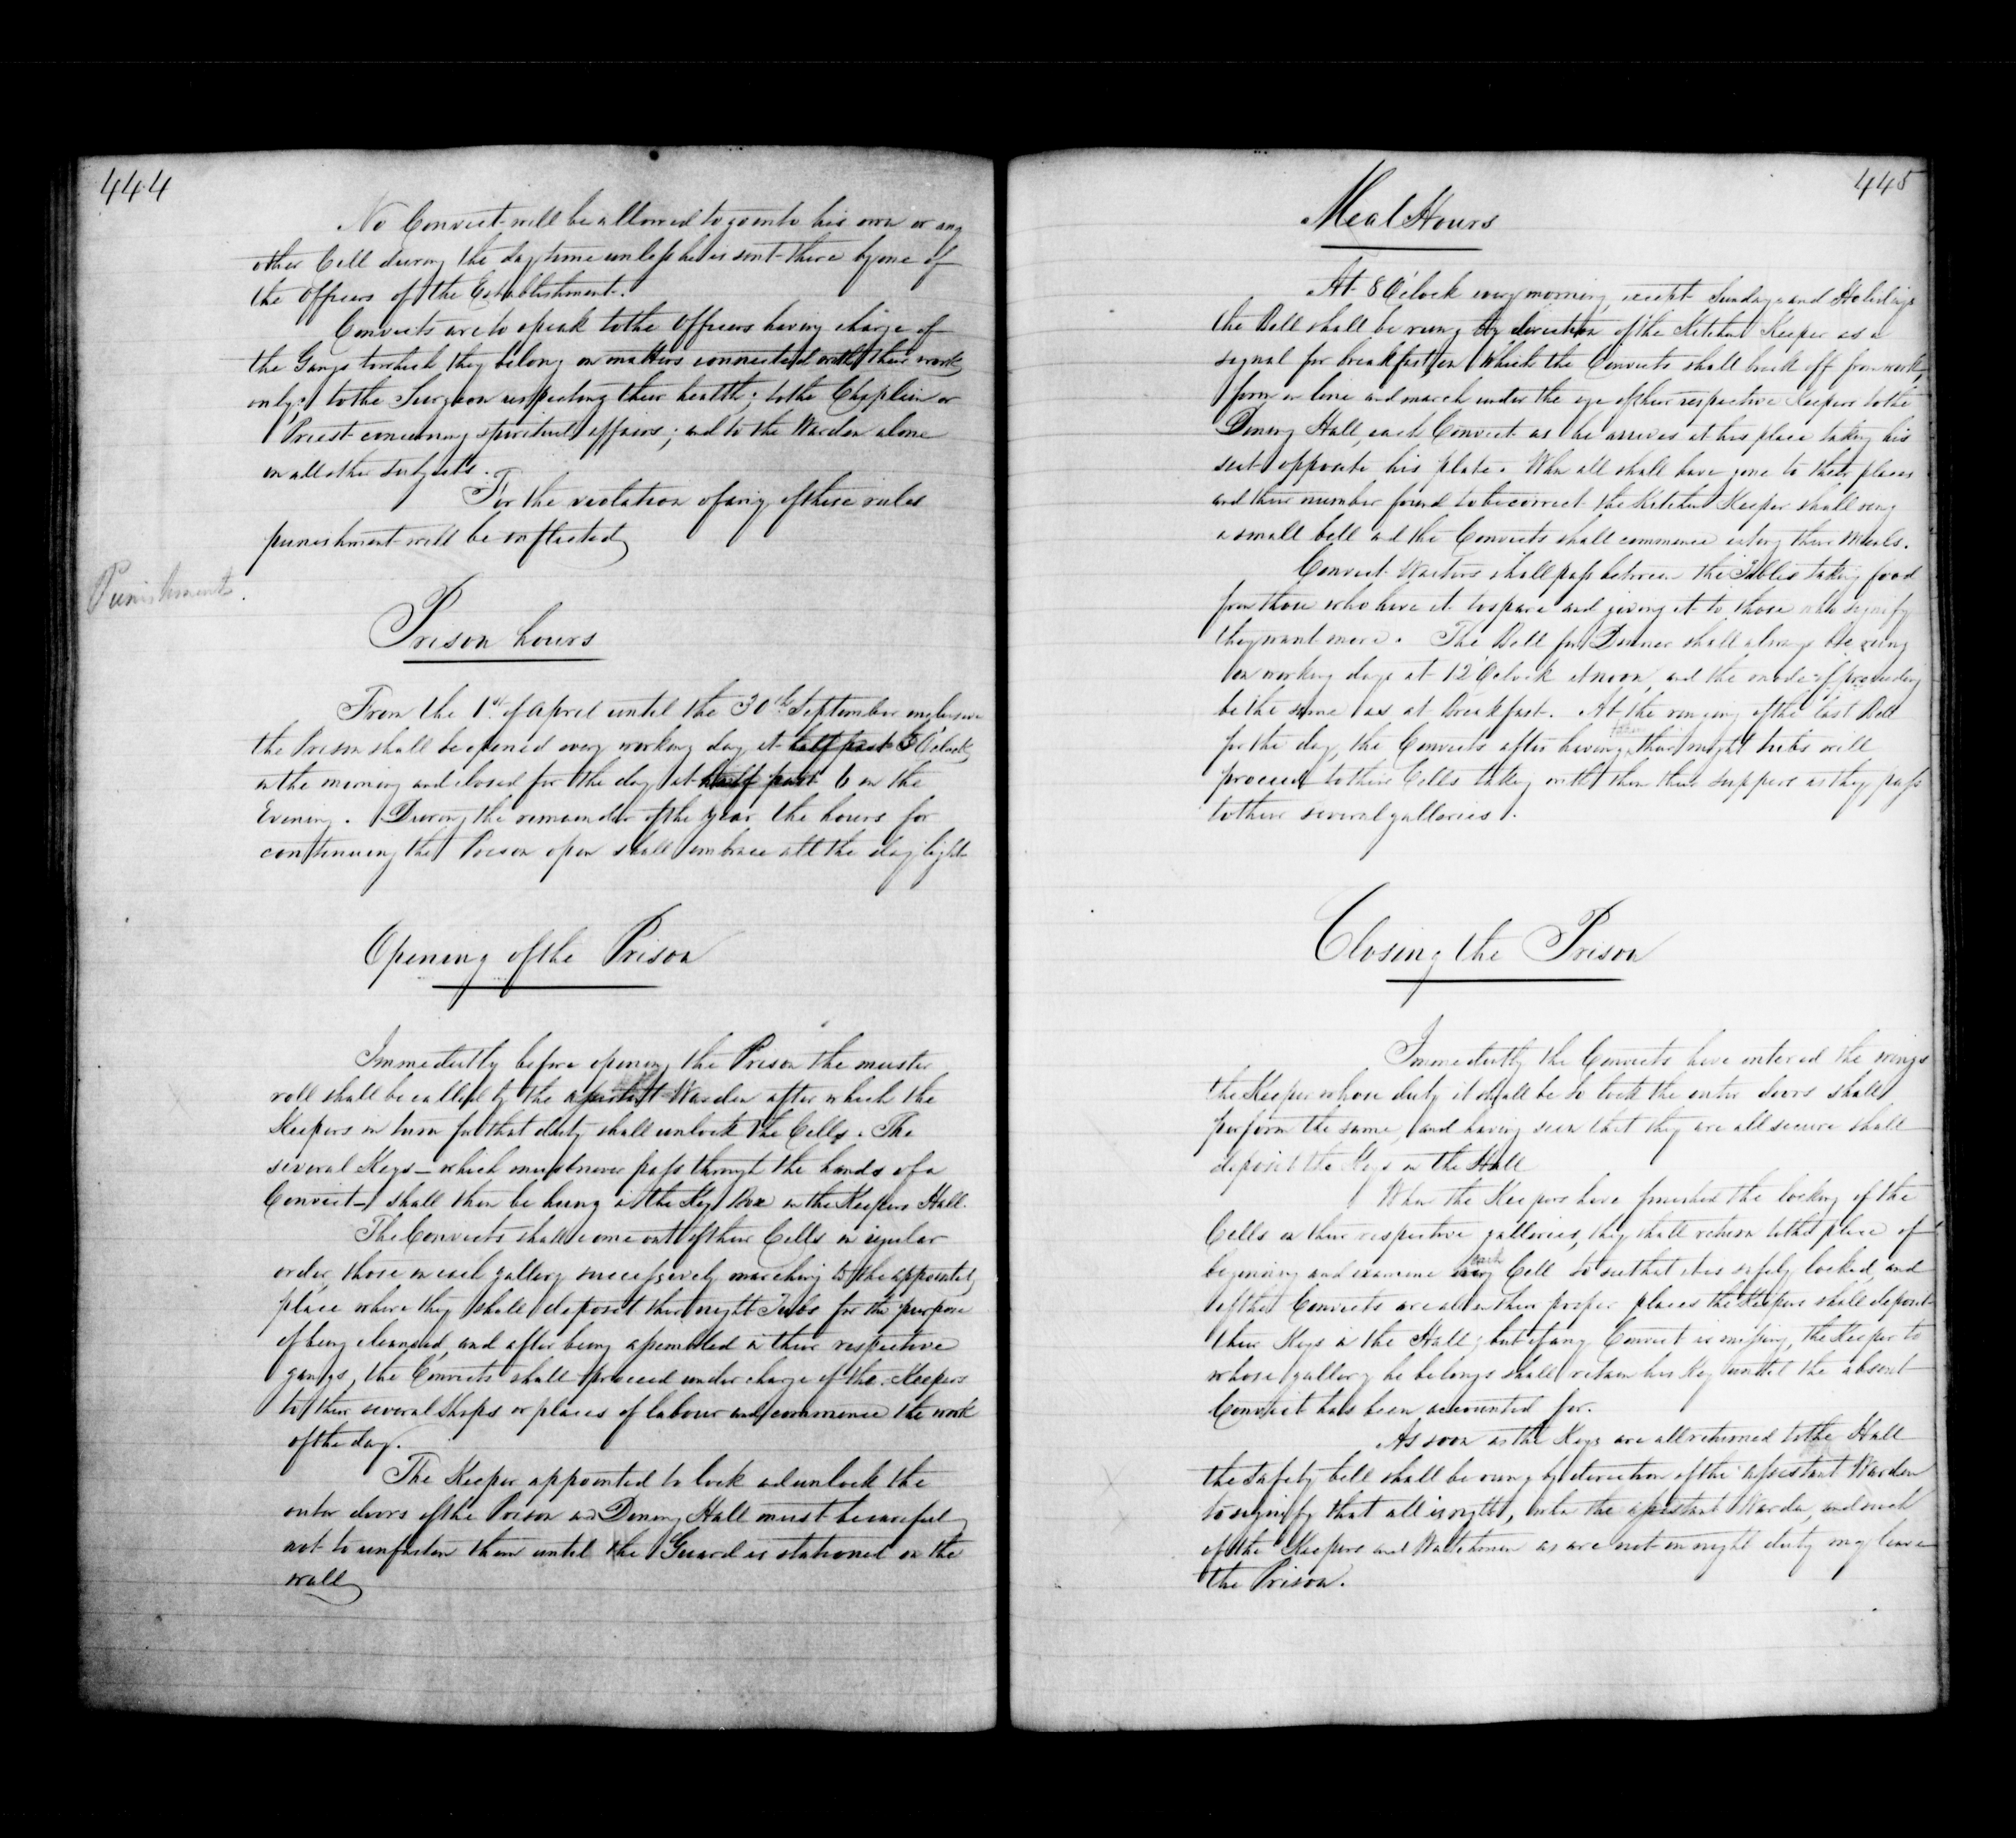 444
No Convict will be allowed to go into his own or any
other Cell during the day time unless he is sent there by one of
the Officers of the Establishment.
Convicts are to speak to the Officers having charge of
the Gangs to which they belong on matters connected with their work
only; to the Surgeon respecting their health; to the Chaplain or
Priest concerning spiritual affairs; and to the Warden alone
on all other subjects.
For the violation of any of these rules
punishment will be inflicted
Punishment.
Prison hours
From the 1st of April until the 30th September inclusive
the Prison shall be opened every working day at half past 5 O'Clock
in the morning and closed for the day at half past 6 in the
Evening. During the remainder of the year the hours for
continuing the Prison open shall embrace all the day light
Opening of the Prison
Immediately before opening the Prison the muster
roll shall be called by the assistant Warden after which the
Keepers in turn for that duty shall unlock the Cells. The
several Keys – which must never pass through the hands of a
Convict – shall then be hung in the Key Box in the Keepers Hall.
The Convicts shall come out of their Cells in regular
order, those in each gallery successively marching to the appointed
place where they shall deposit their night Tubs for the purpose
of being cleansed, and after being assembled in their respective
gangs, the Convicts shall proceed under charge of the Keepers
to their several Shops or places of labour and commence the work
of the day.
The Keeper appointed to lock and unlock the
outer doors of the Prison and Dining Hall must be careful
not to unfasten them until the Guard is stationed on the
wall
445
Meal Hours
At 8 O'Clock every morning, except Sundays and Holidays
the Bell shall be rung by direction of the Kitchen Keeper as a
signal for breakfast, on which the Convicts shall break off from work,
form in line and march under the eye of their respective Keepers to the
Dining Hall, each Convict as he arrives at his place taking his
seat opposite his plate. When all shall have gone to their places
and their number found to be correct the Kitchen Keeper shall ring
a small bell and the Convicts shall commence eating their Meals.
Convict Waiters shall pass between the Tables taking food
from those who have it to spare and giving it to those who signify
they want more. The Bell for Dinner shall always be rung
on working days at 12 O'Clock at noon, and the mode of proceeding
be the same as at Breakfast. At the ringing of the last Bell
for the day, the Convicts after having taken their night tubs will
proceed to their Cells taking with them their suppers as they pass
to their several galleries.
Closing the Prison
Immediately the Convicts have entered the wings
the Keeper whose duty it shall be to lock the outer doors shall
perform the same, and having seen that they are all secure shall
deposit the Keys in the Hall
When the Keepers have finished the locking of the
Cells in their respective galleries, they shall return to the place of
beginning and examine every each Cell to see that it is safely locked, and
if the Convicts are all in their proper places the Keepers shall deposit
their Keys in the Hall; but if any Convict is missing, the Keeper to
whose gallery he belongs shall retain his Key until the absent
Convict has been accounted for.
As soon as the Keys are all returned to the Hall
the safety bell shall be rung by direction of the assistant Warden
to signify that all is right, when the assistant Warden, and such
of the Keepers and Watchmen as are not on night duty may leave
the Prison.